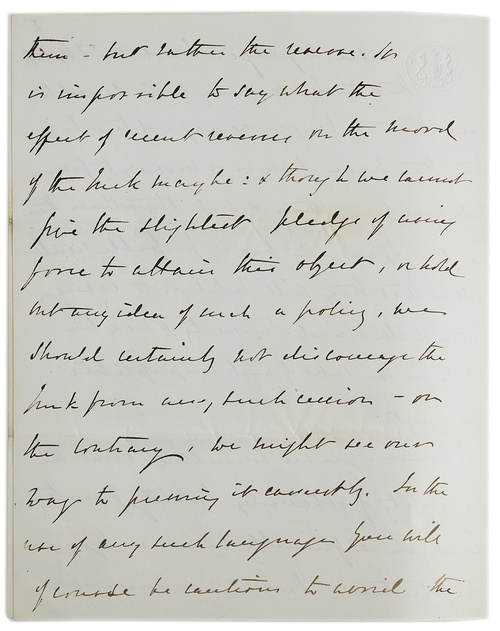 them - but rather the reverse. It
is impossible to say what the
effect of recent reverses on the mood
of the Turk may be: & though we cannot
give the slightest pledge of using
force to attain this object, or hold
out any idea of such a policy, we
should certainly not discourage the
Turk from any such cession - on
the contrary, we might see our
way to pressing it earnestly. In the
use of any such language you will
of course be cautious to avoid the